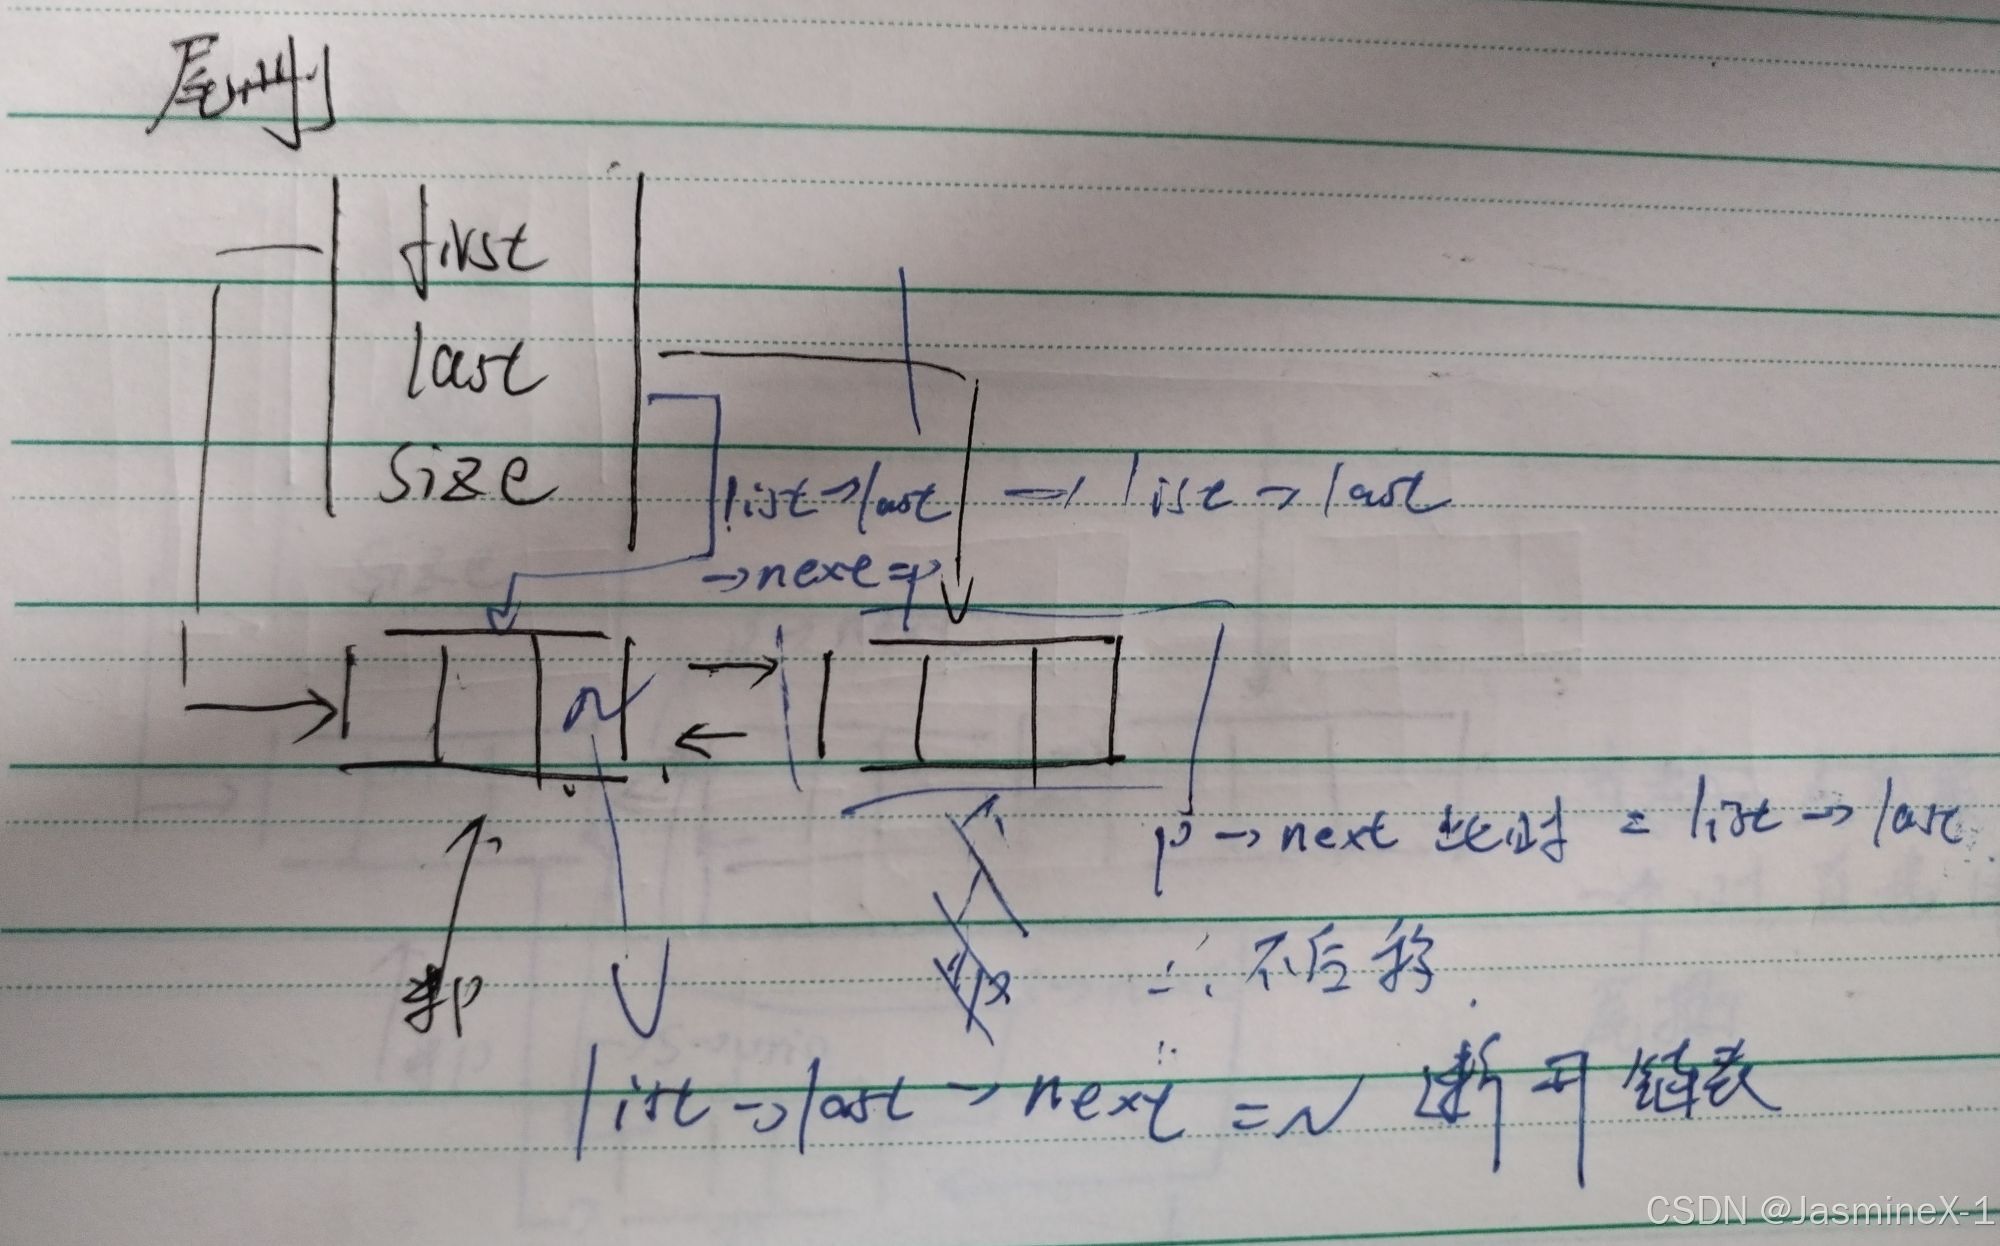 尾删
first
last
size
list→last → list→last
→next=p
N
p→next 此时 = list→last
p
∴ 不后移.
list→last→next =N 断开链表
CSDN @JasmineX-1